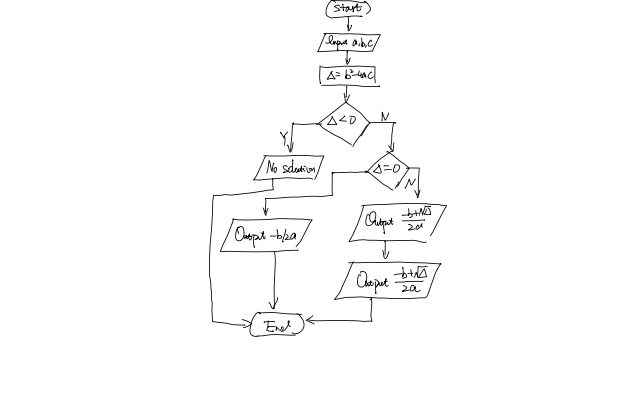 Start
Input a,b,c
Δ= b²-4ac
Δ<0
N
Y
No solution
Δ=0
N
Output -b/2a
Output (-b+√Δ)/2a
Output (-b+√Δ)/2a
End